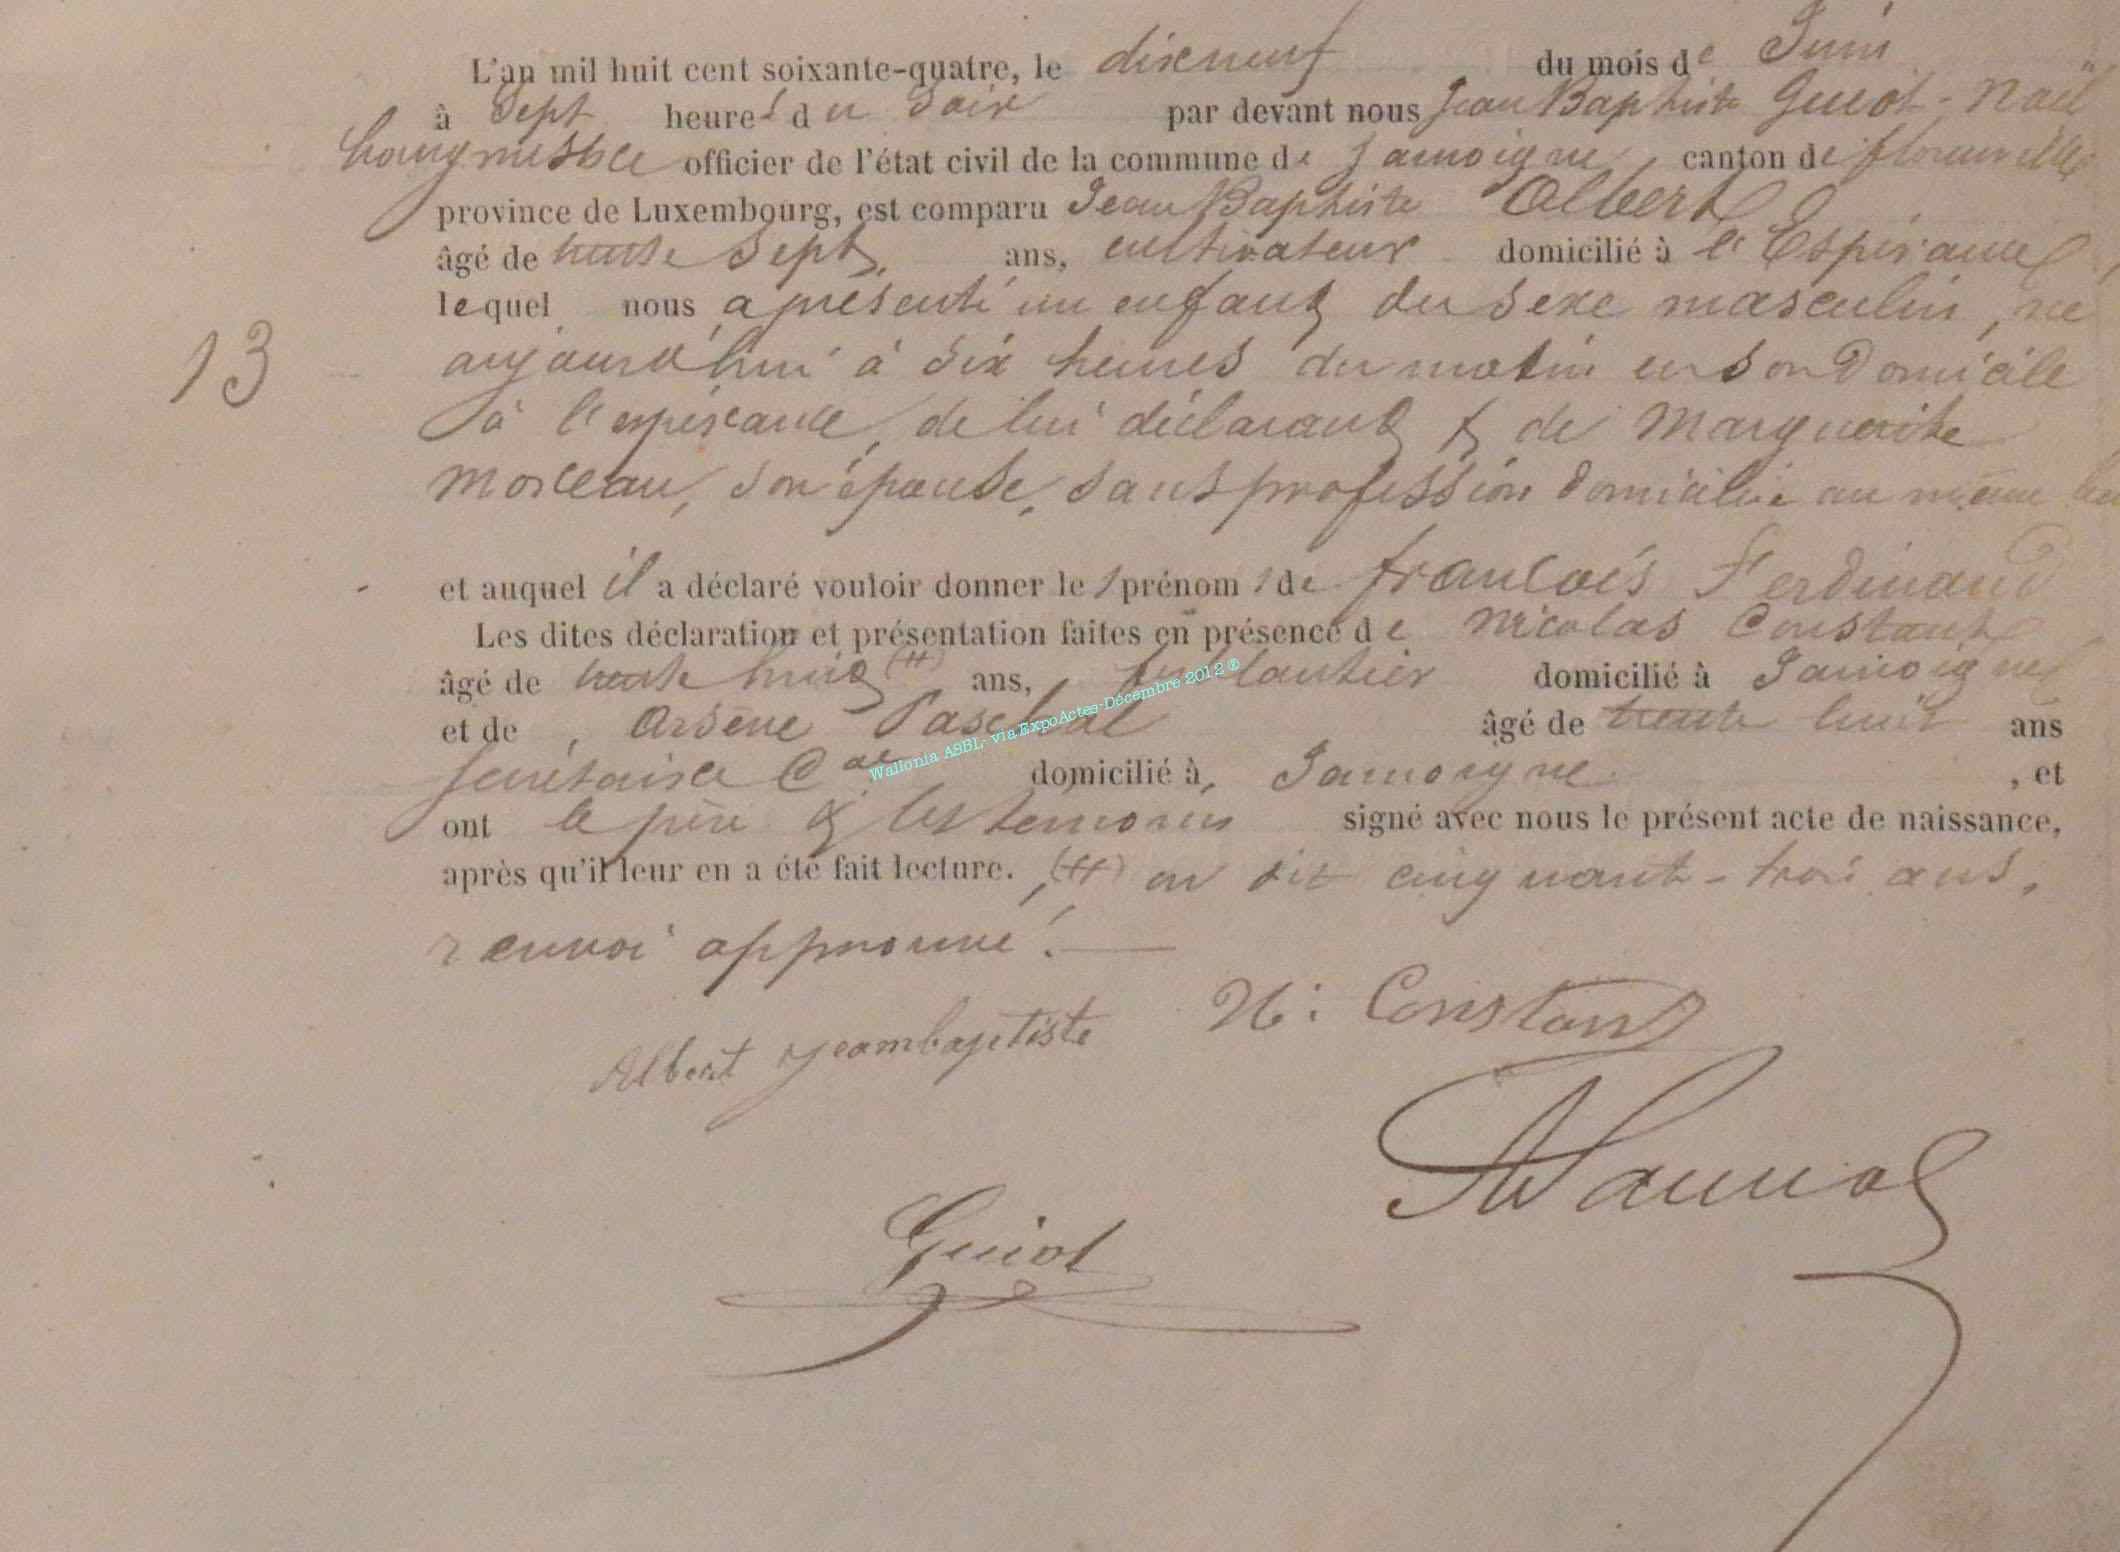 L'an mil huit cent soixante-quatre, le dixneuf du mois de Juin
à Sept heures du Soir par devant nous Jean Baptiste Guiot-Naël
bourgmestre officier de l'état civil de la commune de Jamoigne, canton de florenville
province de Luxembourg, est comparu Jean Baptiste Albert
âgé de trente Sept, ans, cultivateur domicilié à l'Espérance,
lequel nous a présenté un enfant du Sexe masculin, né
aujourd'hui à Six heures du matin en son Domicile
à l'espérance, de lui déclarant & de Marguerite
Morceau, son épouse, sans profession domiciliée au même lieu
13
et auquel il a déclaré vouloir donner les prénoms de francois Ferdinand
Les dites déclaration et présentation faites en présence de Nicolas Constant
âgé de trente huit (#) ans, ferblantier domicilié à Jamoigne
et de, Arsène Paschal âgé de trente huit ans
secrétaire Cal domicilié à, Jamoigne, et
ont le père & les témoins signé avec nous le présent acte de naissance,
après qu'il leur en a été fait lecture. (#) on dit cinquante-trois ans,
renvoi approuvé.
Albert jeambaptiste N: Constant
Guiot
Wallonia ASBL, via ExpoActes-Décembre 2012 ®